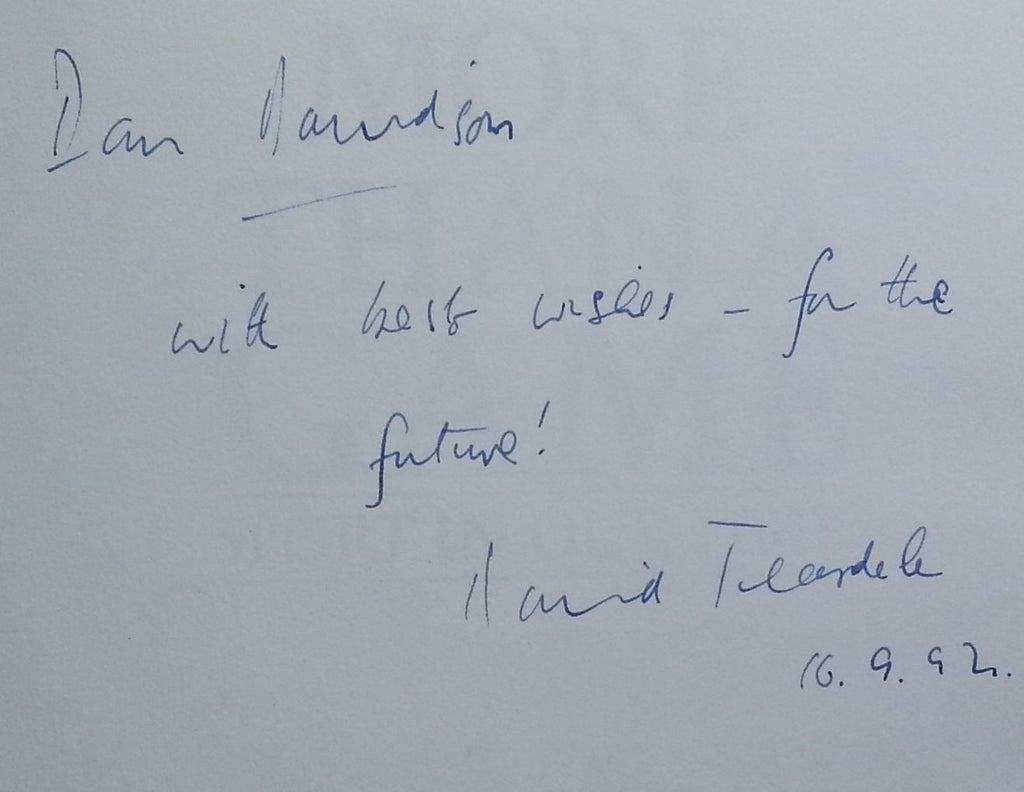 Dan Davidson
with best wishes - for the
future!
David Teasdale
16.9.92.